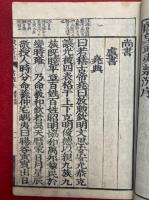 尚書
虞書
堯典
曰若稽古帝堯曰放勳欽明文思安安允恭克
讓光被四表格于上下克明俊德以親九族九
族既睦平章百姓百姓昭明協和萬邦黎民於
變時雍乃命羲和欽若昊天曆象日月星辰
敬授人時分命羲仲宅嵎夷曰暘谷寅賓出日